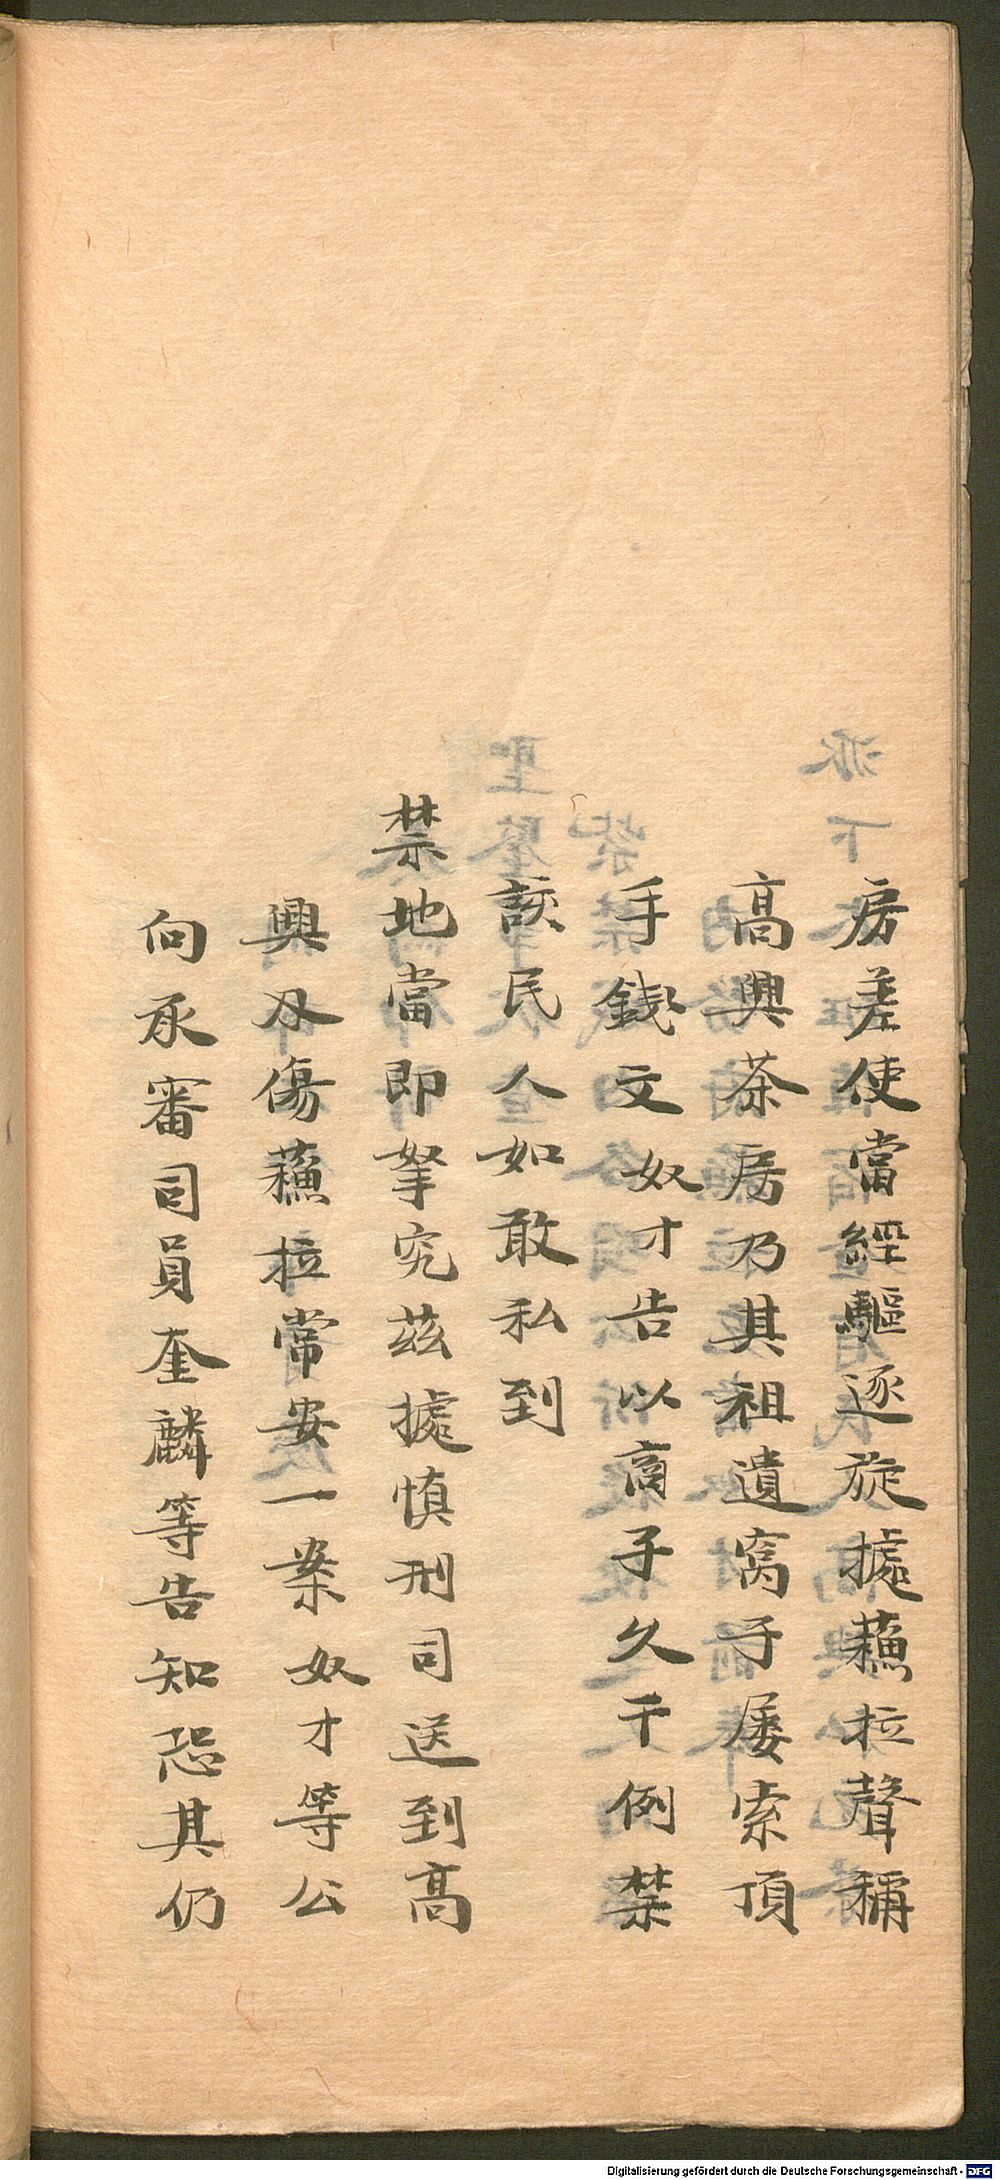 房差使當經驅逐旋據蘓拉聲稱
高興茶房乃其祖遺窩子屡索頂
手錢文奴才告以窩子久干例禁
該民人如敢私到
禁地當即拏究茲據慎刑司送到高
興刃傷蘓拉常安一案奴才等公
向承審司員奎麟等告知恐其仍
Digitalisierung gefördert durch die Deutsche Forschungsgemeinschaft - DFG